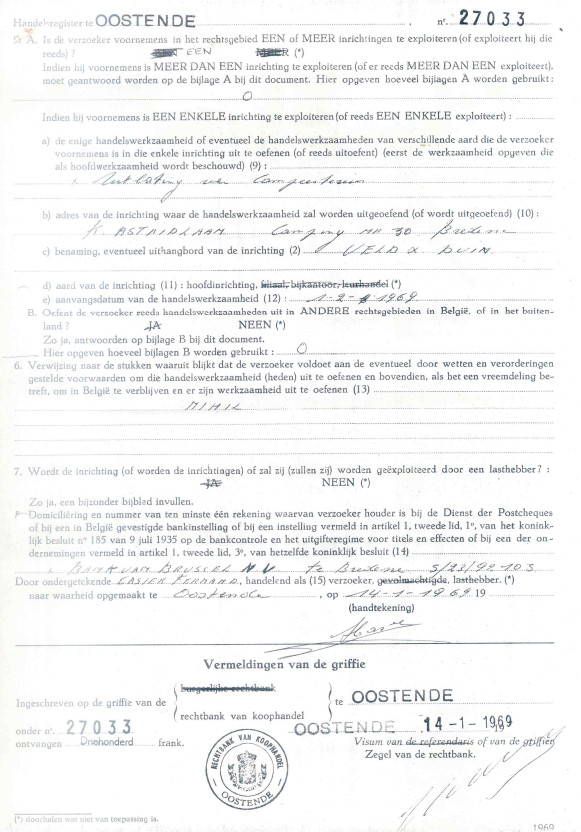 Handelsregister te OOSTENDE nr. 27033
5. A. Is de verzoeker voornemens in het rechtsgebied EEN of MEER inrichtingen te exploiteren (of exploiteert hij die
reeds) ? EEN EEN MEER (*)
Indien hij voornemens is MEER DAN EEN inrichting te exploiteren (of er reeds MEER DAN EEN exploiteert),
moet geantwoord worden op de bijlage A bij dit document. Hier opgeven hoeveel bijlagen A worden gebruikt :
0
Indien hij voornemens is EEN ENKELE inrichting te exploiteren (of reeds EEN ENKELE exploiteert) :
a) de enige handelswerkzaamheid of eventueel de handelswerkzaamheden van verschillende aard die de verzoeker
voornemens is in die enkele inrichting uit te oefenen (of reeds uitoefent) (eerst de werkzaamheid opgeven die
als hoofdwerkzaamheid wordt beschouwd) (9) :
Uitbating van
b) adres van de inrichting waar de handelswerkzaamheid zal worden uitgeoefend (of wordt uitgeoefend) (10) :
K. ASTRIDLAAN Camping nr 30 Bredene
c) benaming, eventueel uithangbord van de inrichting (2) VELD & DUIN
d) aard van de inrichting (11) : hoofdinrichting, filiaal, bijkantoor, leurhandel (*)
e) aanvangsdatum van de handelswerkzaamheid (12) : 1-2-1969
B. Oefent de verzoeker reeds handelswerkzaamheden uit in ANDERE rechtsgebieden in België, of in het buiten-
land ? JA NEEN (*)
Zo ja, antwoorden op bijlage B bij dit document.
Hier opgeven hoeveel bijlagen B worden gebruikt : 0
6. Verwijzing naar de stukken waaruit blijkt dat de verzoeker voldoet aan de eventueel door wetten en verordeningen
gestelde voorwaarden om die handelswerkzaamheid (heden) uit te oefenen en bovendien, als het een vreemdeling be-
treft, om in België te verblijven en er zijn werkzaamheid uit te oefenen (13)
NIHIL
7. Wordt de inrichting (of worden de inrichtingen) of zal zij (zullen zij) worden geëxploiteerd door een lasthebber ? :
JA NEEN (*)
Zo ja, een bijzonder bijblad invullen.
Domiciliëring en nummer van ten minste één rekening waarvan verzoeker houder is bij de Dienst der Postcheques
of bij een in België gevestigde bankinstelling of bij een instelling vermeld in artikel 1, tweede lid, 1º, van het konink-
lijk besluit nº 185 van 9 juli 1935 op de bankcontrole en het uitgifteregime voor titels en effecten of bij een der on-
dernemingen vermeld in artikel 1, tweede lid, 3º, van hetzelfde koninklijk besluit (14)
BANK VAN BRUSSEL N.V. te Bredene 5/23/92.103
Door ondergetekende CASIER FERNAND, handelend als (15) verzoeker, gevolmachtigde, lasthebber. (*)
naar waarheid opgemaakt te Oostende, op 14-1-1969 19
(handtekening)
Vermeldingen van de griffie
burgerlijke rechtbank
Ingeschreven op de griffie van de te OOSTENDE
rechtbank van koophandel
onder nº. 27033 OOSTENDE 14-1-1969
ontvangen Driehonderd frank. Visum van de referendaris of van de griffier
Zegel van de rechtbank.
RECHTBANK VAN KOOPHANDEL
OOSTENDE
(*) doorhalen wat niet van toepassing is.
1969